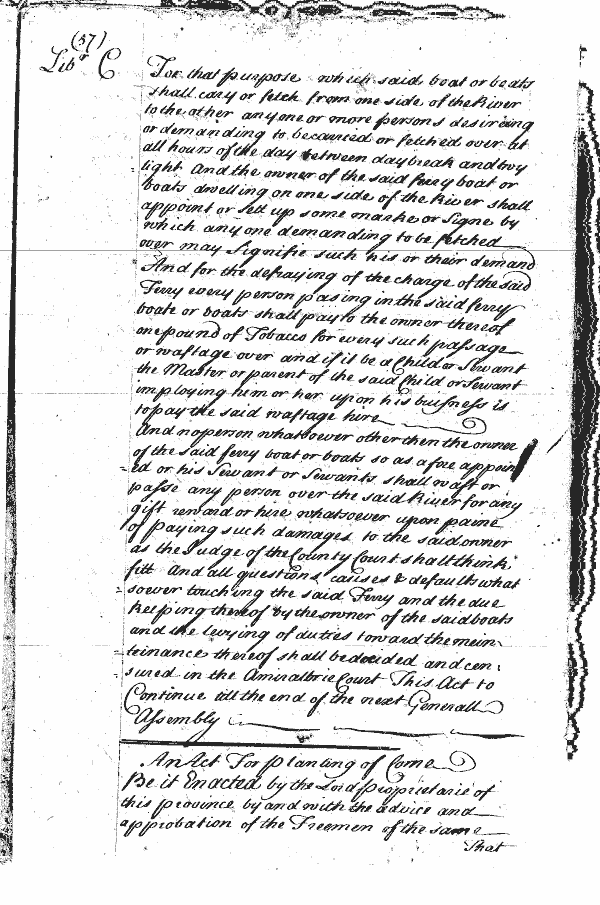 (37)
Libr C
For that purpose which said boat or boats
shall cary or fetch from one side of the River
to the other any one or more persons desireing
or demanding to be carried or fetched over at
all hours of the day between daybreak and twy
light And the owner of the said ferry boat or
boats dwelling on one side of the River shall
appoint or sett up some marke or Signe by
which any one demanding to be fetched
over may Signifie such his or their demand
And for the defraying of the charge of the said
Ferry every person pasing in the said ferry
boate or boats shall pay to the owner thereof
one pound of Tobacco for every such passage
or waftage over and if it be a Child or Servant
the Master or parent of the said Child or Servant
imploying him or her upon his buisness is
to pay the said waftage hire
And no person whatsoever other then the owner
of the said ferry boat or boats so as afore appoint
ed or his Servant or Servants shall waft or
passe any person over the said River for any
gift reward or hire whatsoever upon paine
of paying such damages to the said owner
as the Judge of the County Court shall think
fitt And all questions, causes & defaults what
soever touching the said Ferry and the due
keeping thereof by the owner of the said boats
and the levying of duties toward the mein
teinance thereof shall be decided and cen:
sured in the Amiraltrie Court This Act to
Continue till the end of the next Generall
Assembly
An Act For planting of Corne
Be it Enacted by the Lord proprietarie of
this province by and with the advice and
approbation of the Freemen of the same
That